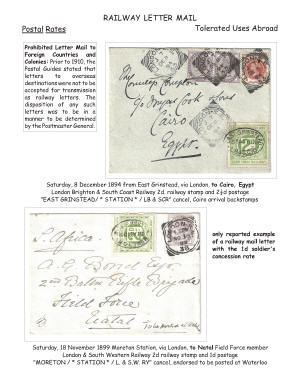 RAILWAY LETTER MAIL
Postal Rates
Tolerated Uses Abroad
Prohibited Letter Mail to
Foreign Countries and
Colonies: Prior to 1910, the
Postal Guides stated that
letters to overseas
destinations were not to be
accepted for transmission
as railway letters. The
disposition of any such
letters was to be in a
manner to be determined
by the Postmaster General.
Cairo
Egypt.
Saturday, 8 December 1894 from East Grinstead, via London, to Cairo, Egypt
London Brighton & South Coast Railway 2d. railway stamp and 2½d postage
"EAST GRINSTEAD/ * STATION * / LB & SCR" cancel, Cairo arrival backstamps
only reported example
of a railway mail letter
with the 1d soldier's
concession rate
S. Africa.
Field Force
Natal
Saturday, 18 November 1899 Moreton Station, via London, to Natal Field Force member
London & South Western Railway 2d railway stamp and 1d postage
"MORETON / * STATION * / L. & S.W. RY" cancel, endorsed to be posted at Waterloo